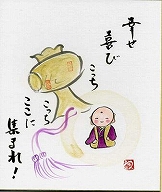 幸せ
喜び
こっち
こっち
ここに
集まれ！